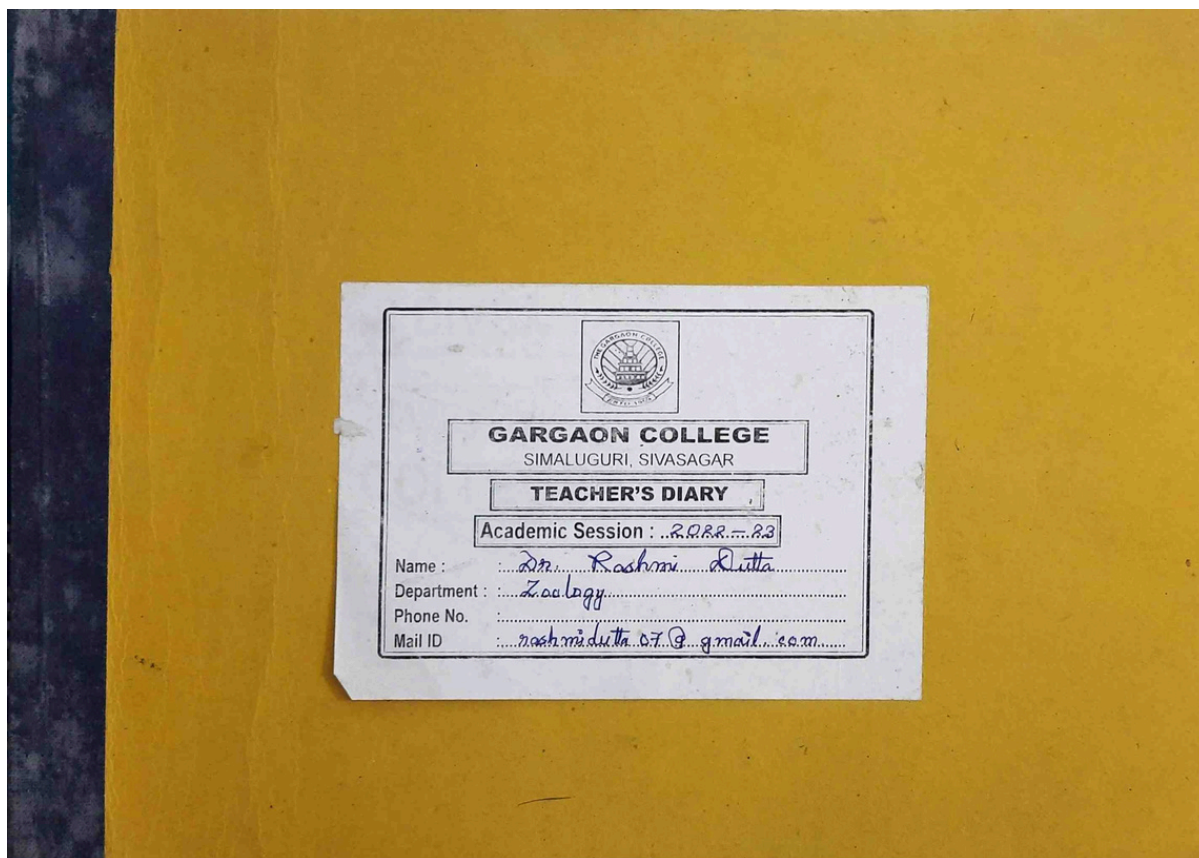 THE GARGAON COLLEGE
GARGAON COLLEGE
SIMALUGURI, SIVASAGAR
TEACHER'S DIARY
Academic Session : 2022-23
Name : : Dr. Rashmi Dutta
Department : : Zoology
Phone No. :
Mail ID : rashmidutta07@gmail.com